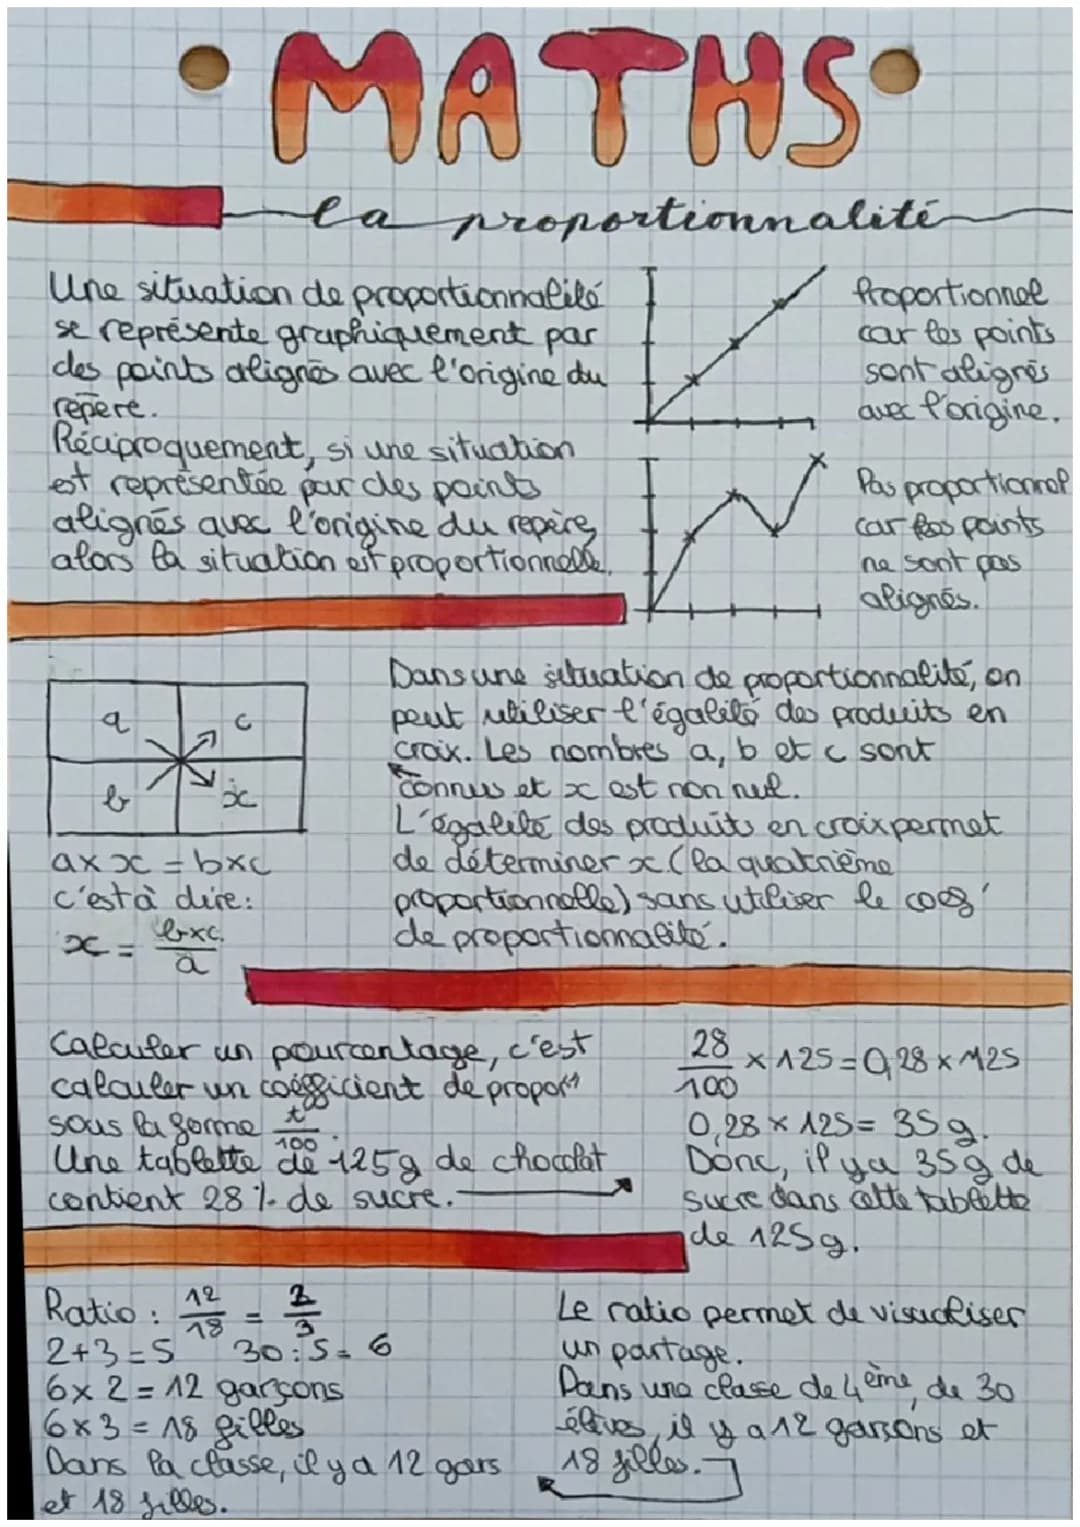 MATHS
la proportionnalité
Une situation de proportionnalité
se représente graphiquement par
des points alignés avec l'origine du
repère.
Réciproquement, si une situation
est représentée par des points
alignés avec l'origine du repère,
alors la situation est proportionnelle.
Proportionnel
car les points
sont alignés
avec l'origine.
Pas proportionnel
car les points
ne sont pas
alignés.
a c
b x
a x x = b x c
c'est à dire:
x = b x c / a
Dans une situation de proportionnalité, on
peut utiliser l'égalité des produits en
croix. Les nombres a, b et c sont
connus et x est non nul.
L'égalité des produits en croix permet
de déterminer x (la quatrième
proportionnelle) sans utiliser le coef'
de proportionnalité.
Calculer un pourcentage, c'est
calculer un coefficient de propor°
sous la forme t/100.
Une tablette de 125g de chocolat
contient 28 % de sucre.
28/100 x 125 = 0,28 x 125
0,28 x 125 = 35g.
Donc, il y a 35g de
sucre dans cette tablette
de 125g.
Ratio : 12/18 = 2/3
2+3=5 30:5=6
6x2=12 garçons
6x3=18 filles
Dans la classe, il y a 12 gars
et 18 filles.
Le ratio permet de visualiser
un partage.
Dans une classe de 4ème, de 30
élèves, il y a 12 garçons et
18 filles.